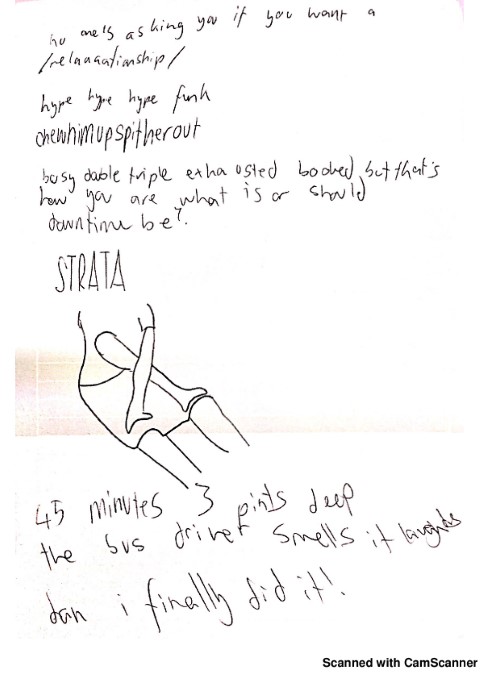 no one's asking you if you want a
/relaaaationship/
hype hype hype funk
chewhimupspitherout
busy double triple exhausted booked, but that's
how you are what is or should
downtime be?
STRATA
45 minutes 3 pints deep
the bus driver smells it laughs
dan i finally did it!
Scanned with CamScanner